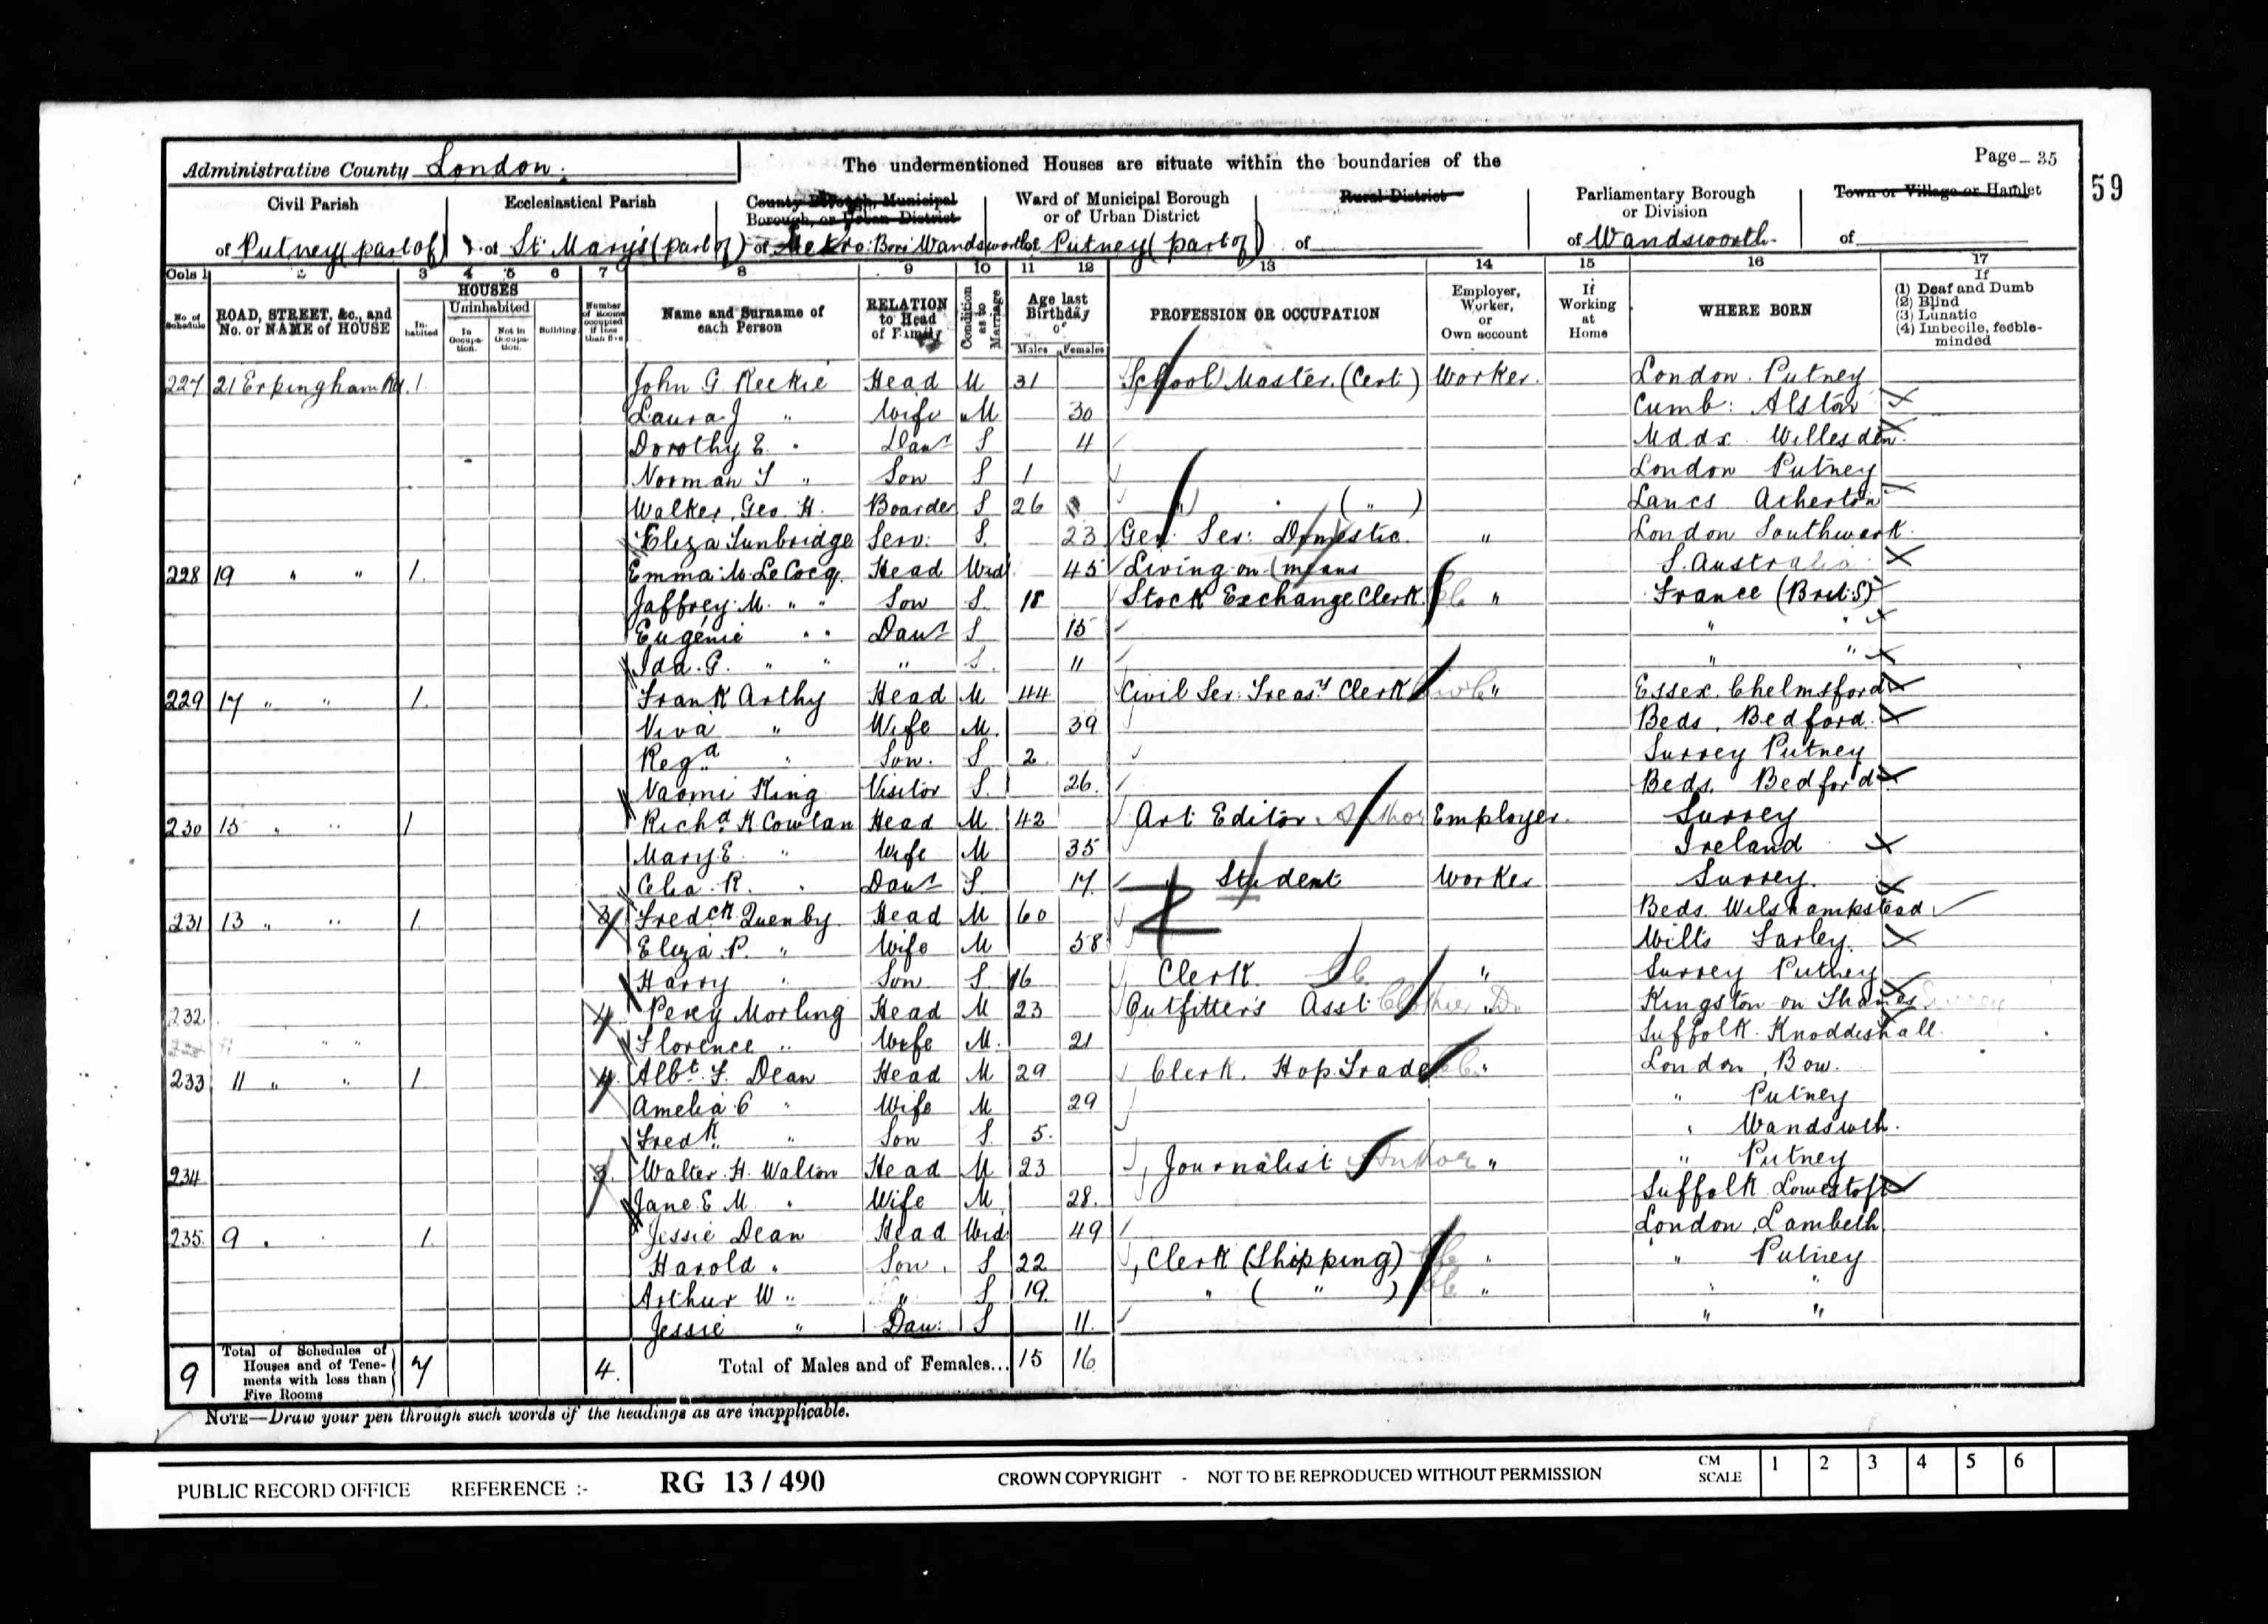 Administrative County London.
The undermentioned Houses are situate within the boundaries of the
Page 35
59
Civil Parish
of Putney (part of)
Ecclesiastical Parish
of St. Mary's (part of)
County Borough, Municipal Borough, or Urban District
of Metro: Boro Wandsworth
Ward of Municipal Borough or of Urban District
of Putney (part of)
Rural District
of
Parliamentary Borough or Division
of Wandsworth
Town or Village or Hamlet
of
Cols 1 2 3 4 5 6 7 8 9 10 11 12 13 14 15 16 17
No. of Schedule
ROAD, STREET, &c., and No. or NAME of HOUSE
HOUSES
Inhabited
Uninhabited
In Occupation.
Not in Occupation.
Building
Number of Rooms occupied if less than five
Name and Surname of each Person
RELATION to Head of Family
Condition as to Marriage
Age last Birthday of
Males Females
PROFESSION OR OCCUPATION
Employer, Worker, or Own account
If Working at Home
WHERE BORN
If (1) Deaf and Dumb (2) Blind (3) Lunatic (4) Imbecile, feeble-minded
227 21 Erpingham Rd. 1 John G Reekie Head M 31 School Master (Cert) Worker London Putney
Laura J " Wife M 30 Cumb: Alston
Dorothy E. " Daur S 4 Mddx Willesden
Norman " Son S 1 London Putney
Walker, Geo. H. Boarder S 26 " " ( " ) Lancs Atherton
Eliza Tunbridge Serv: S 23 Gen: Ser: Domestic " London Southwark
228 19 " " 1 Emma M. Le Cocq Head Wid 45 Living on means S. Australia
Jaffrey M. " " Son S 18 Stock Exchange Clerk " France (Brit: S)
Eugénie " " Daur S 15 " "
Ida G. " " " S 11 " "
229 17 " " 1 Frank Arthy Head M 44 Civil Ser: Treasy Clerk " Essex Chelmsford
Viva " Wife M 39 Beds, Bedford
Regd " Son S 2 Surrey Putney
Naomi King Visitor S 26 Beds. Bedford
230 15 " " 1 Richd K Cowlan Head M 42 Art Editor Author Employer Surrey
Mary E. " Wife M 35 Ireland
Celia R. " Daur S 17 Student Worker Surrey
231 13 " " 1 3 Fredck Quenby Head M 60 Beds. Wilshampstead
Eliza P. " Wife M 58 Wilts Farley
Harry " Son S 16 Clerk " Surrey Putney
232 4 Percy Morling Head M 23 Outfitter's Asst " Kingston on Thames Surrey
" " Florence " Wife M 21 Suffolk Knoddishall
233 11 " " 1 4 Albt. F. Dean Head M 29 Clerk, Hop Trade " London, Bow
Amelia C " Wife M 29 " Putney
Fredk " Son S 5 " Wandswth.
234 3 Walter H. Walton Head M 23 Journalist Author " " Putney
Jane E M. " Wife M 28 Suffolk Lowestoft
235 9 " " 1 Jessie Dean Head Wid 49 London, Lambeth
Harold " Son S 22 Clerk (Shipping) " " Putney
Arthur W " " S 19 " ( " ) " " "
Jessie " Dau: S 11 " "
9 Total of Schedules of Houses and of Tenements with less than Five Rooms 7 4 Total of Males and of Females... 15 16
NOTE—Draw your pen through such words of the headings as are inapplicable.
PUBLIC RECORD OFFICE REFERENCE :- RG 13 / 490 CROWN COPYRIGHT - NOT TO BE REPRODUCED WITHOUT PERMISSION CM SCALE 1 2 3 4 5 6